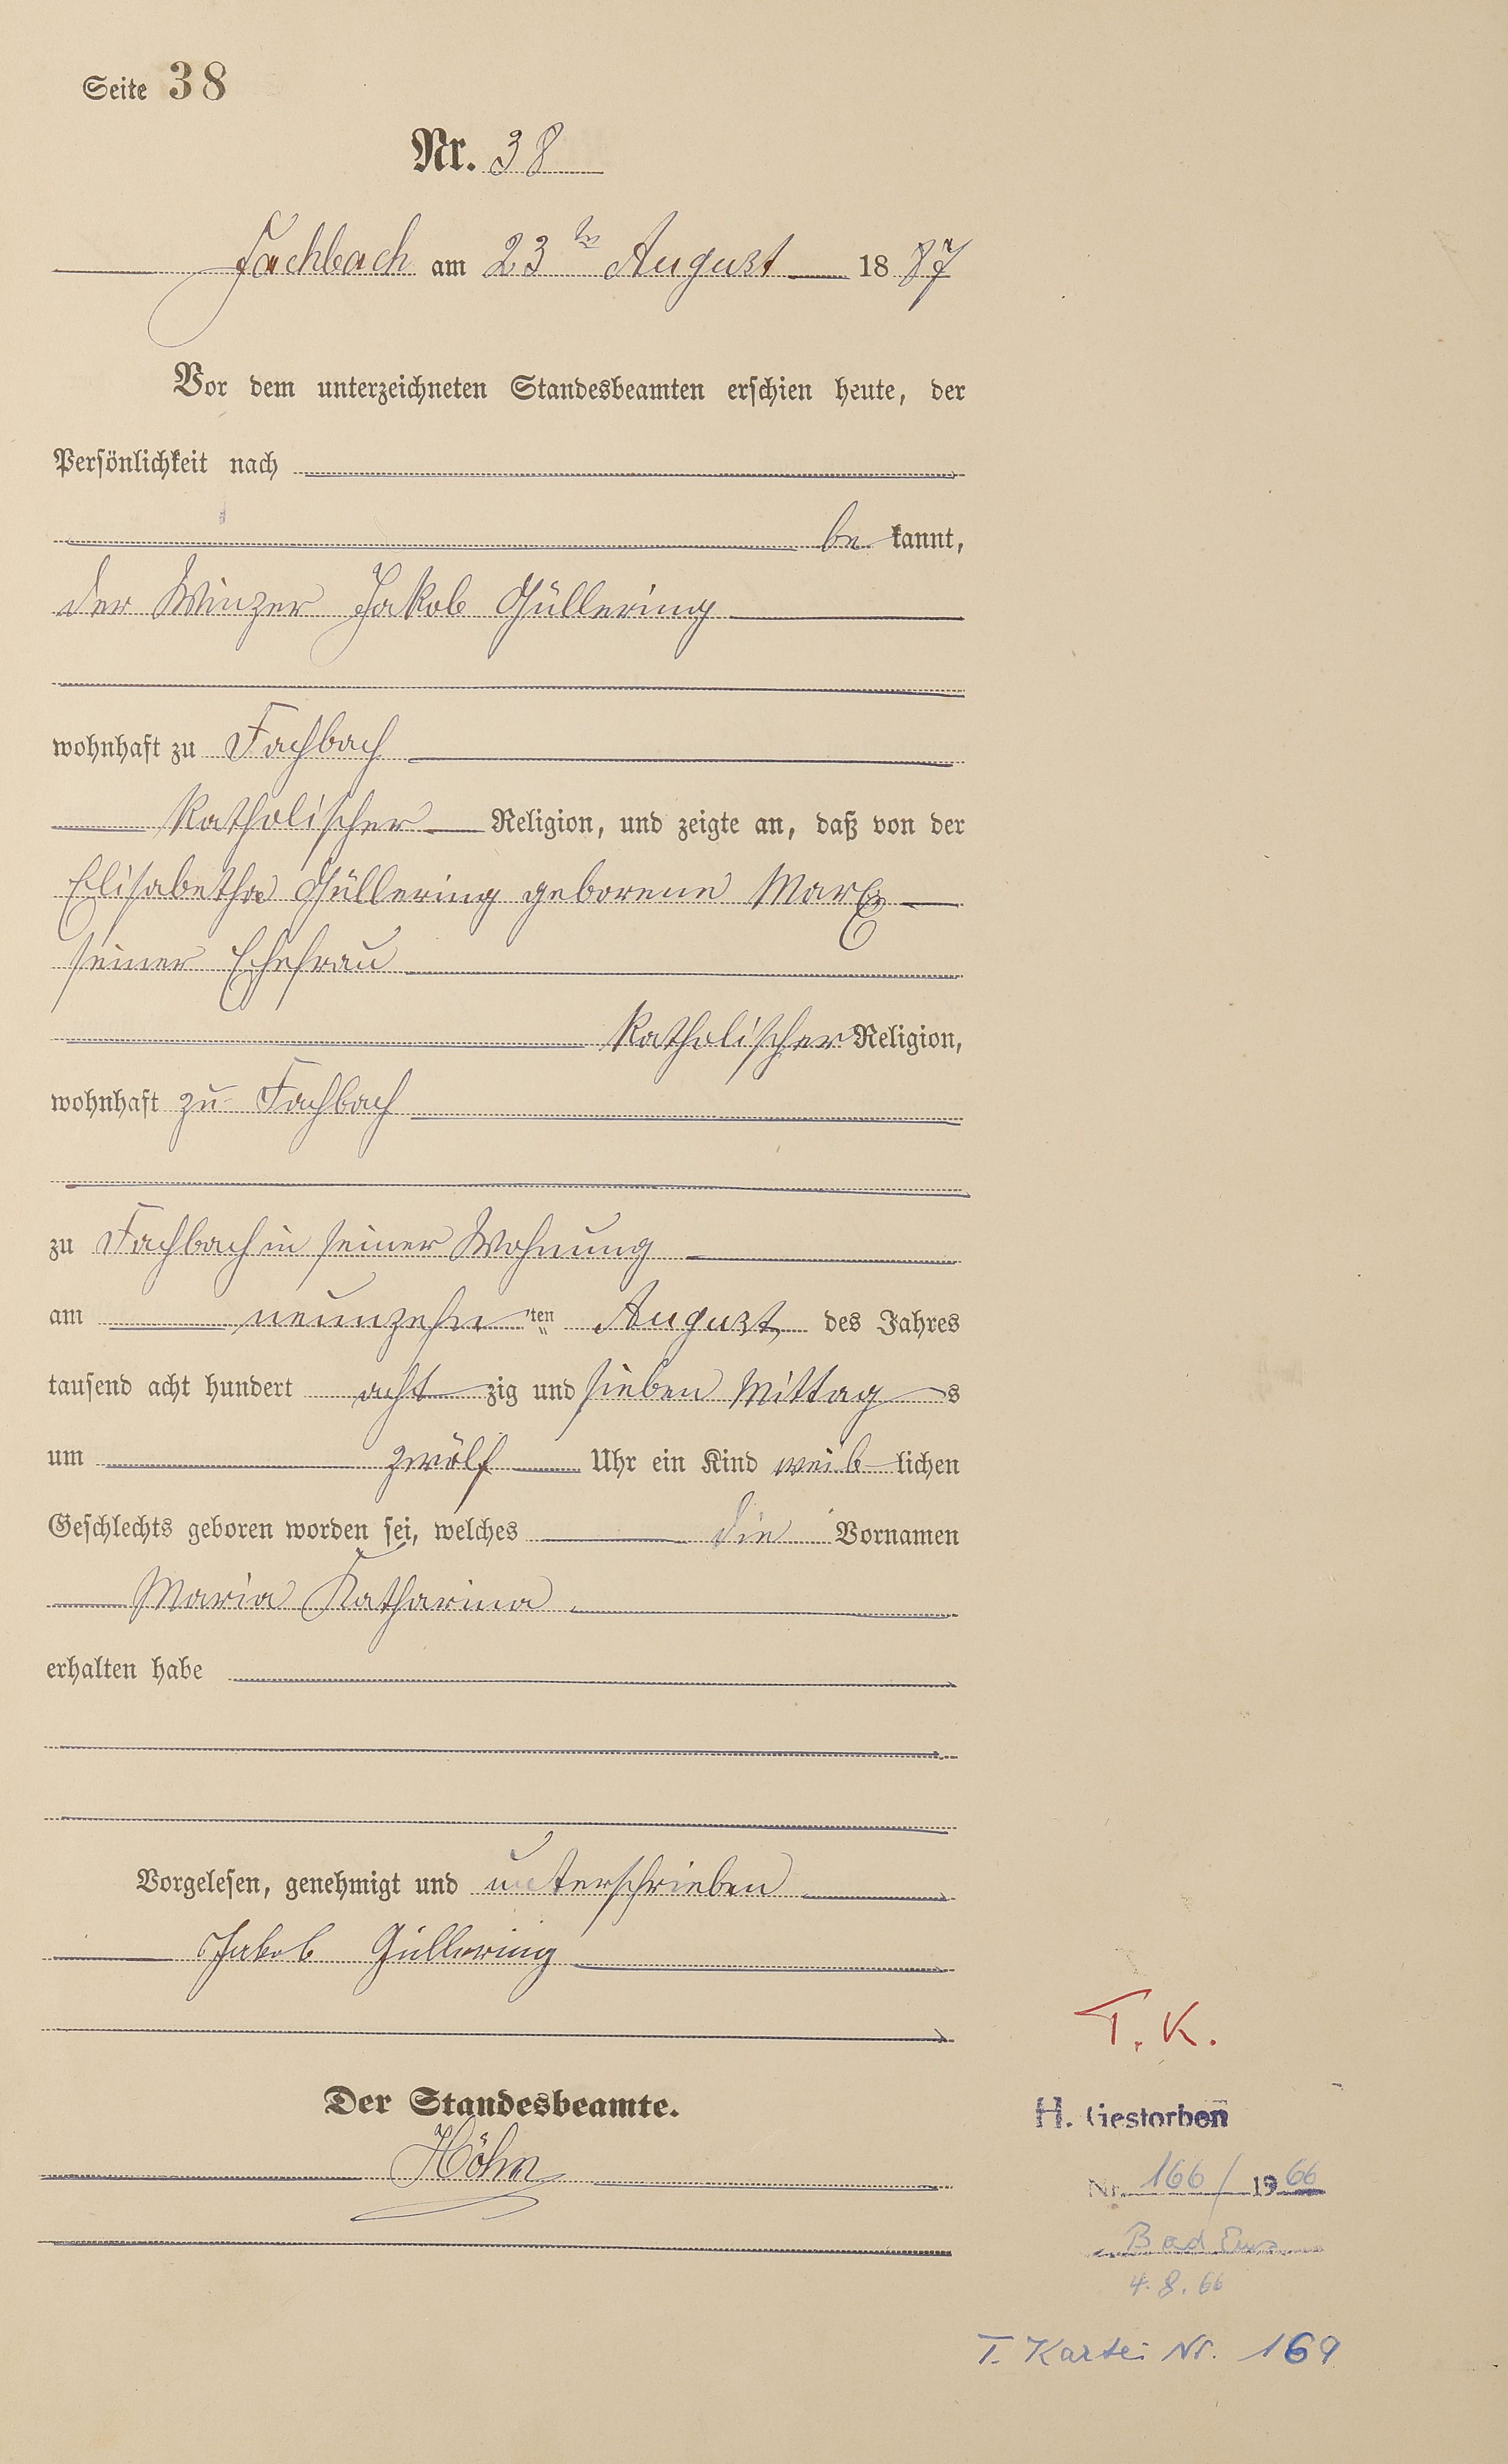 Seite 38
Nr. 38
Fachbach am 23ten August 1887
Vor dem unterzeichneten Standesbeamten erschien heute, der
Persönlichkeit nach
be kannt,
der Winzer Jakob Güllering
wohnhaft zu Fachbach
Katholischer Religion, und zeigte an, daß von der
Elisabetha Güllering geborene Marx
seiner Ehefrau
Katholischer Religion,
wohnhaft zu Fachbach
zu Fachbach in seiner Wohnung
am neunzehn ten August des Jahres
tausend acht hundert acht zig und sieben Mittag s
um zwölf Uhr ein Kind weib lichen
Geschlechts geboren worden sei, welches die Vornamen
Maria Katharina
erhalten habe
Vorgelesen, genehmigt und unterschrieben
Jakob Güllering
Der Standesbeamte.
Höhn
T. K.
H. Gestorben
Nr. 166/1966
Bad Ems
4.8.66
T. Kartei Nr. 169